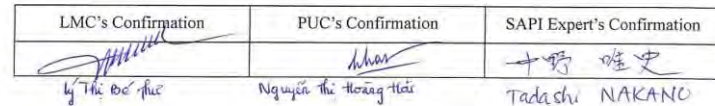 LMC's Confirmation PUC's Confirmation SAPI Expert's Confirmation
中野 唯史
Lý Thị Bé Nguyễn Thi Hoàng Hải Tadashi NAKANO